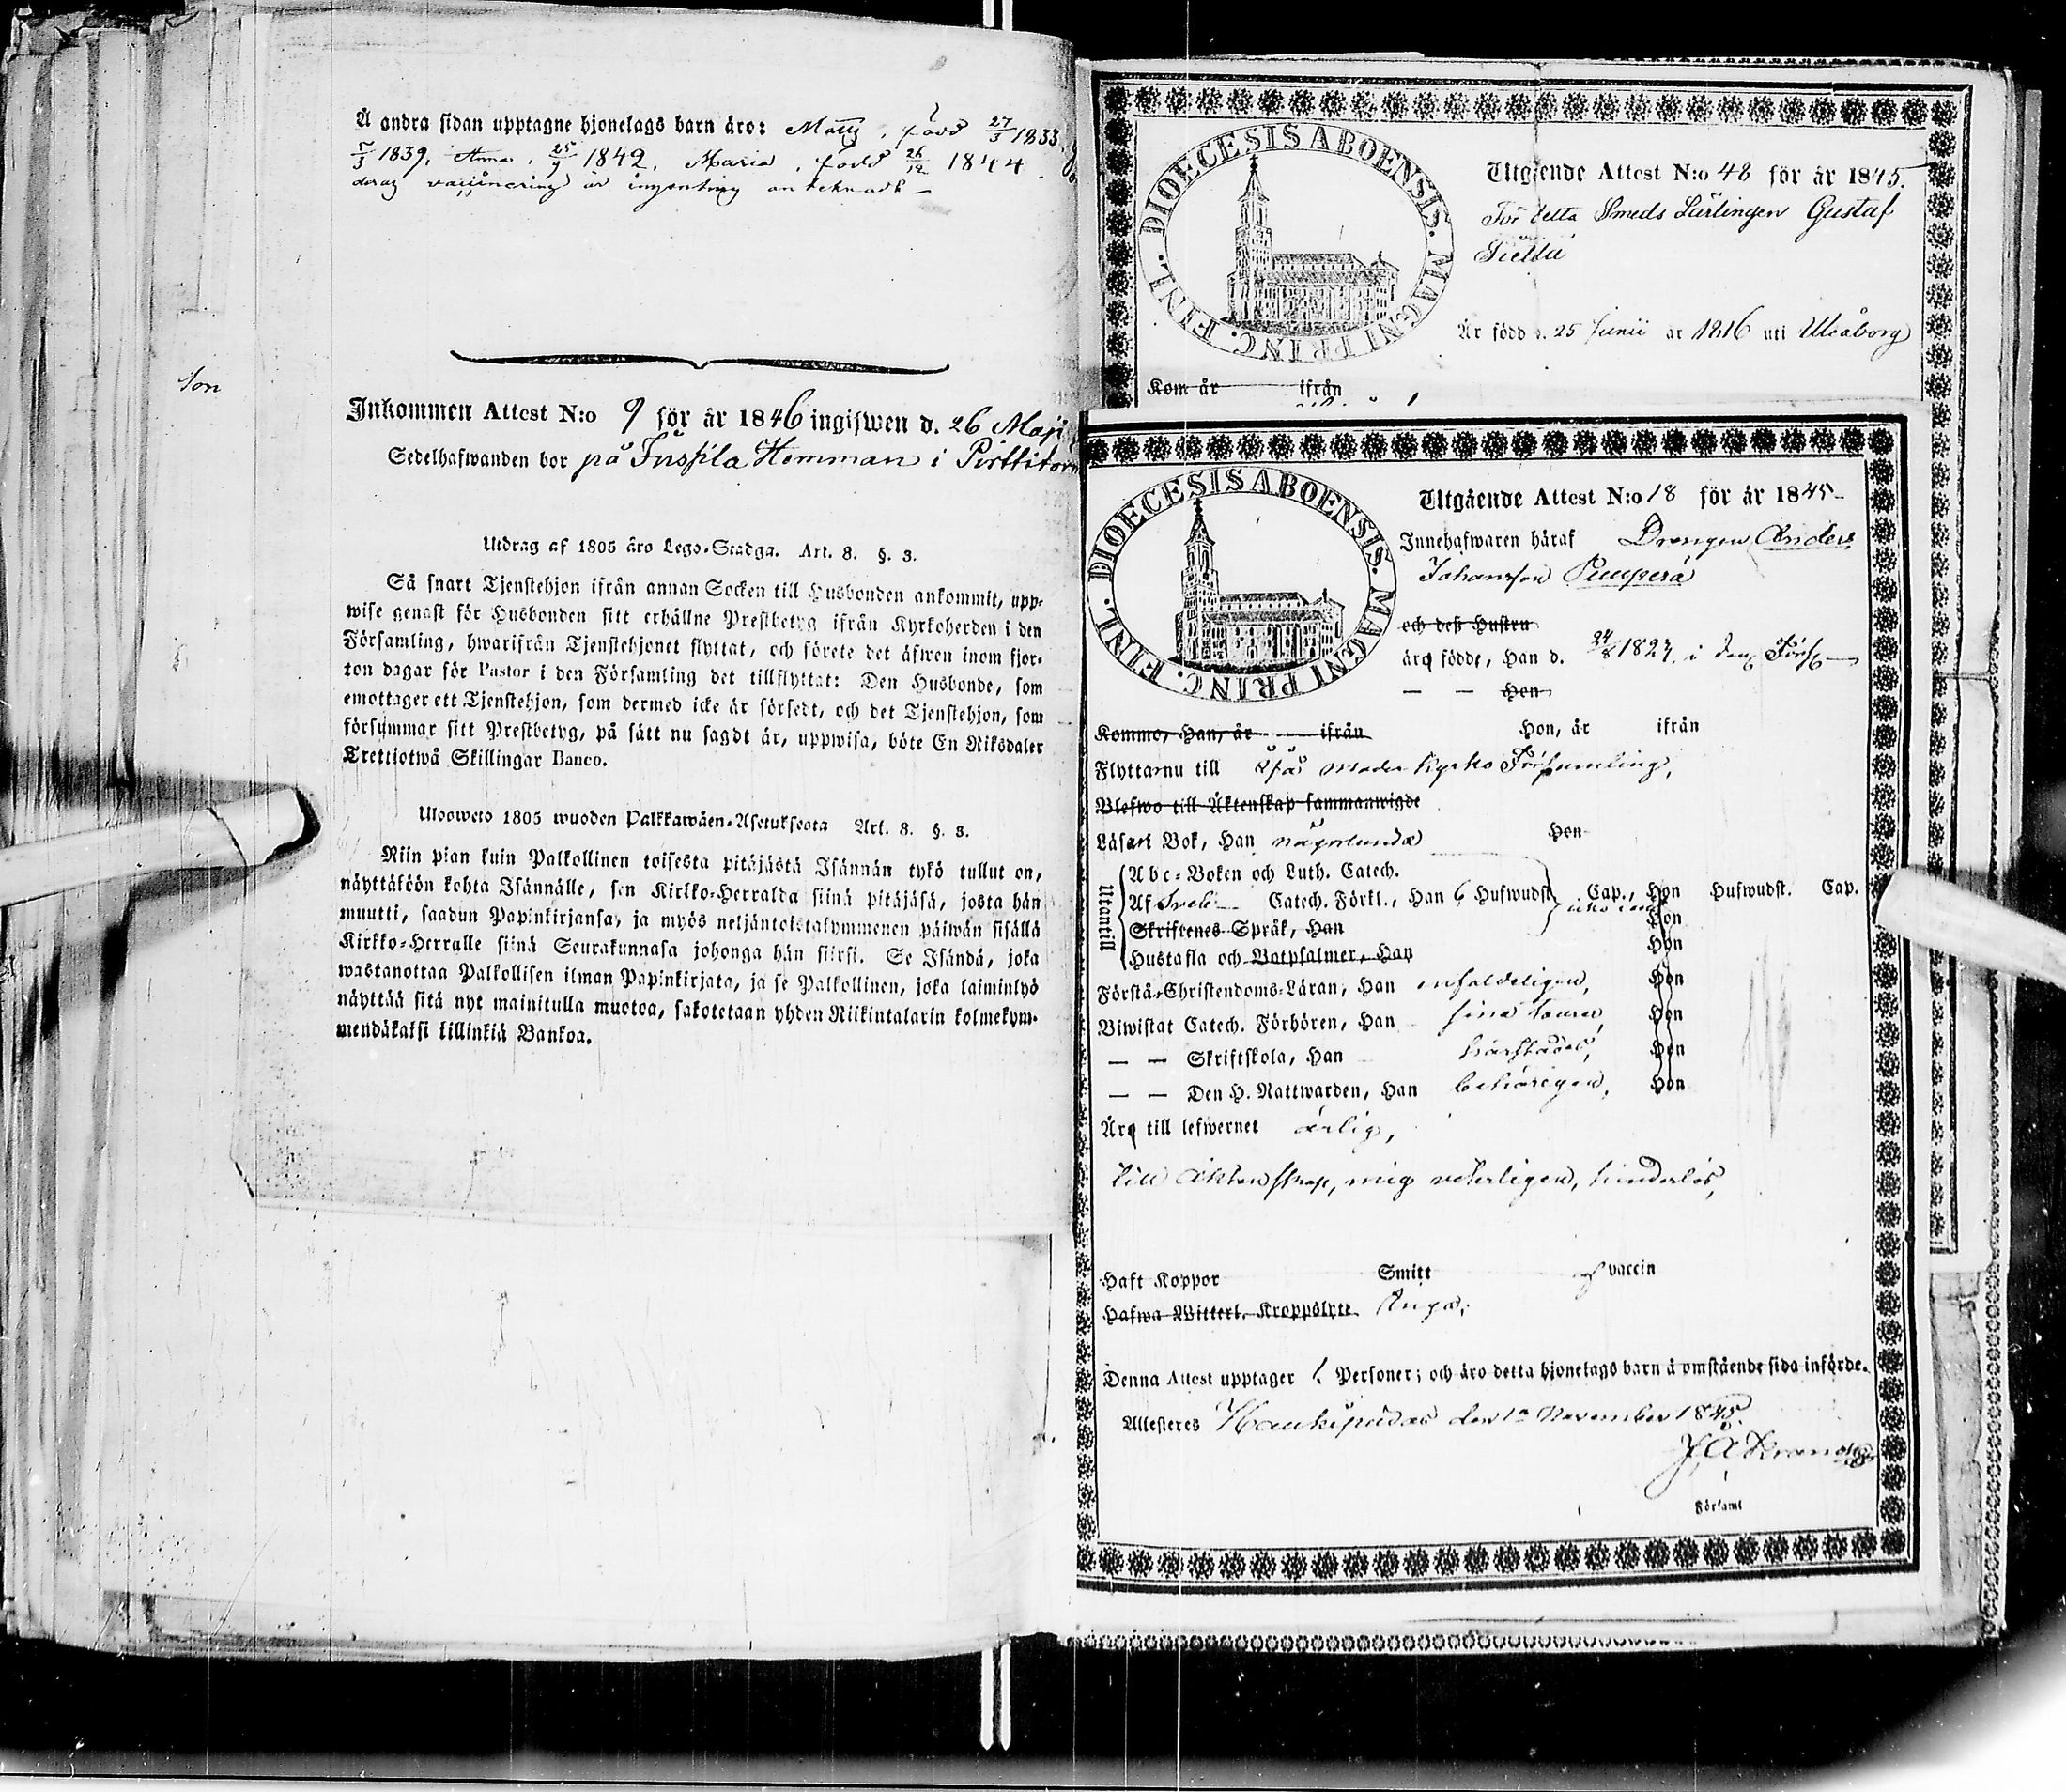 Son
Å andra sidan upptagne hjonelags barn äro: Matts, född 27/3 1833,
5/3 1839, Anna, 25/9 1842, Maria, född 26/12 1844.
deras vaccinering är ingenting antecknadt —
Inkommen Attest N:o 9 för år 1846 ingifwen d. 26 Maji
Sedelhafwanden bor på Hemman i
Utdrag af 1805 åro Lego-Stadga. Art. 8. §. 3.
Så snart Tjenstehjon ifrån annan Socken till Husbonden ankommit, upp-
wise genast för Husbonden sitt erhållne Prestbetyg ifrån Kyrkoherden i den
Församling, hwarifrån Tjenstehjonet flyttat, och förete det äfwen inom fjor-
ton dagar för Pastor i den Församling det tillflyttat: Den Husbonde, som
emottager ett Tjenstehjon, som dermed icke är försedt, och det Tjenstehjon, som
försummar sitt Prestbetyg, på sätt nu sagdt är, uppwisa, böte En Riksdaler
Trettiotwå Skillingar Banco.
Ulosweto 1805 wuoden Palkkawäen-Asetuksesta Art. 8. §. 3.
Niin pian kuin Palkollinen toisesta pitäjästä Isännän tykö tullut on,
näyttäköön kohta Isännälle, sen Kirkko-Herralda siinä pitäjäsä, josta hän
muutti, saadun Papinkirjansa, ja myös neljäntoistakymmenen päiwän sisällä
Kirkko-Herralle siinä Seurakunnasa johonga hän siirsi. Se Isändä, joka
wastanottaa Palkollisen ilman Papinkirjata, ja se Palkollinen, joka laiminlyö
näyttää sitä nyt mainitulla muotoa, sakotetaan yhden Riikintalarin kolmekym-
mendäkaksi killinkiä Bankoa.
DIOECESIS ABOENSIS. MAGNI PRINC. FINL.
Utgående Attest N:o 48 för år 1845.
För detta Smeds Lärlingen Gustaf
Är född d. 25 Junii år 1816 uti Uleåborg
Kom år ifrån
DIOECESIS ABOENSIS. MAGNI PRINC. FINL.
Utgående Attest N:o 18 för år 1845
Innehafwaren häraf Drengen Anders
Johansson Puuperä
och deß Hustru
äro födde, Han d. 24/8 1827, i den Förs.
— — Hon
Kommo, Han, år ifrån Hon, år ifrån
Flyttar nu till Moder Kyrko Församling,
Blefwo till Äktenskap sammanwigde
Läsa i Bok, Han någorlunda Hon
Utantill
Abc-Boken och Luth. Catech.
Af Catech. Förkl., Han 6 Hufwudst. Cap., Hon Hufwudst. Cap.
Skriftenes Språk, Han Hon
Hustafla och Botpsalmer, Han Hon
Förstå Christendoms-Läran, Han enfaldeligen, Hon
Biwistat Catech. Förhören, Han sina Hon
— — Skriftskola, Han härstädes, Hon
— — Den H. Nattwarden, Han behörigen, Hon
Äro till lefwernet ärlig,
till Äktenskap, mig veterligen, hinderlös,
Haft Koppor Smitt af vaccin
Hafwa Witterl. Kroppslyte Inga,
Denna Attest upptager 1. Personer; och äro detta hjonelags barn å omstående sida införde.
Attesteres Haukipudas den 1a November 1845.
Församl